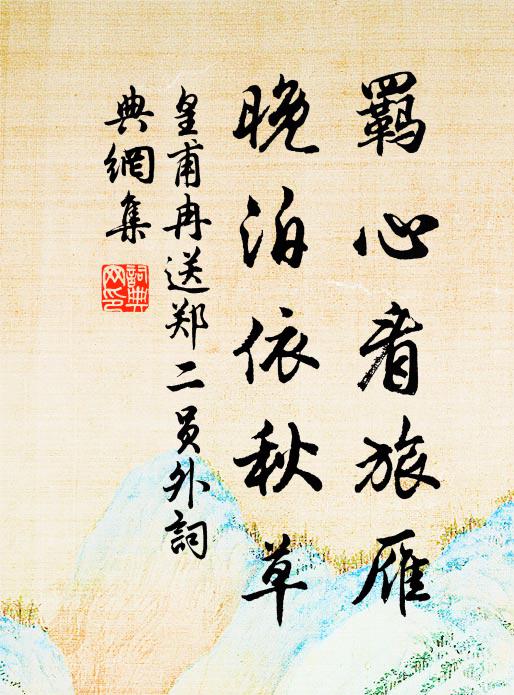 羈心看旅雁
晚泊依秋草
皇甫冉送郑二员外詞
典網集
詞典网印